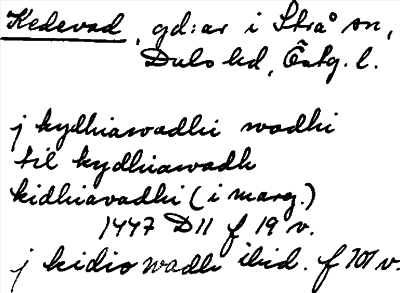 Kedevad, gd:ar i Strå sn,
Dals hd, Östg. l.
j kydhiawadhi wadhi
til kydhiawadh
kidhiavadhi (i marg.)
1447 D 11 f 19 v.
j kidiowadh ibid. f 101 v.